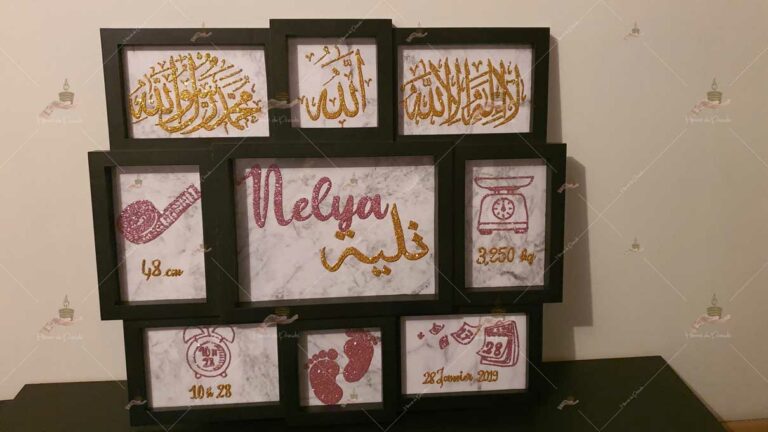 محمد رسول الله
الله
لا إله إلا الله
Nelya
نلية
48 cm
3,250 kg
10 h 28
10 H 28
28
28 Janvier 2019